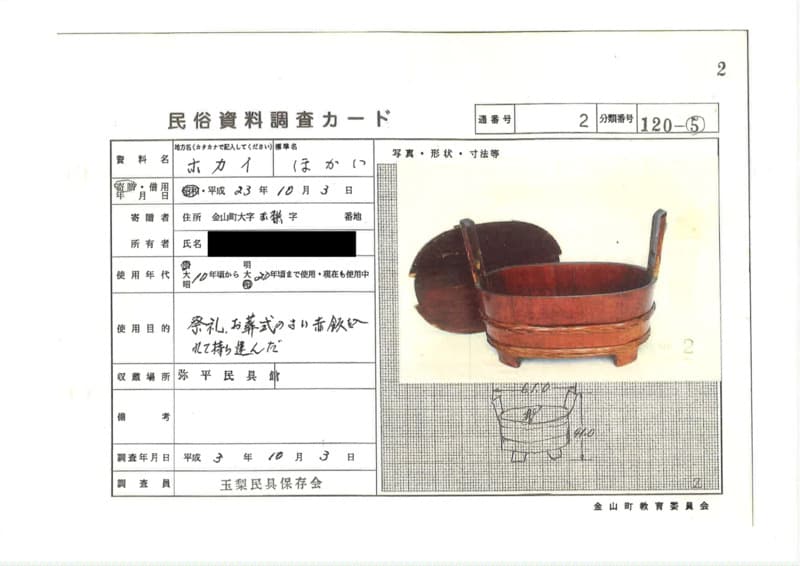 2
民俗資料調査カード
通番号 2 分類番号 120-⑤
資料名
地方名(カタカナで記入してください)
ホカイ
標準名
ほかい
写真・形状・寸法等
寄贈・借用年月日
昭和・平成 23年 10月 3日
寄贈者
住所 金山町大字玉梨字 番地
所有者
氏名
使用年代
明大昭 10年頃から 明大昭 20年頃まで使用・現在も使用中
使用目的
祭礼、お葬式のさい赤飯を
入れて持ち運んだ
収蔵場所
弥平民具館
備考
調査年月日
平成 3年 10月 3日
調査員
玉梨民具保存会
61.0
41.0
2
2
金山町教育委員会